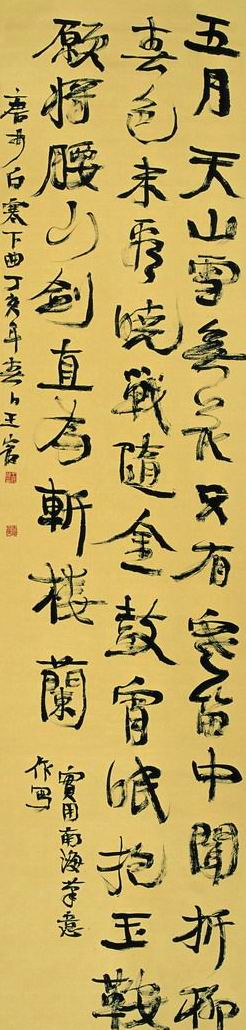 五月天山雪無花只有寒笛中聞折柳
春色未看曉戰隨金鼓宵眠抱玉鞍
願將腰下劍直為斬樓蘭
實用南海筆意
作寫
唐李白塞下曲丁亥年春月王